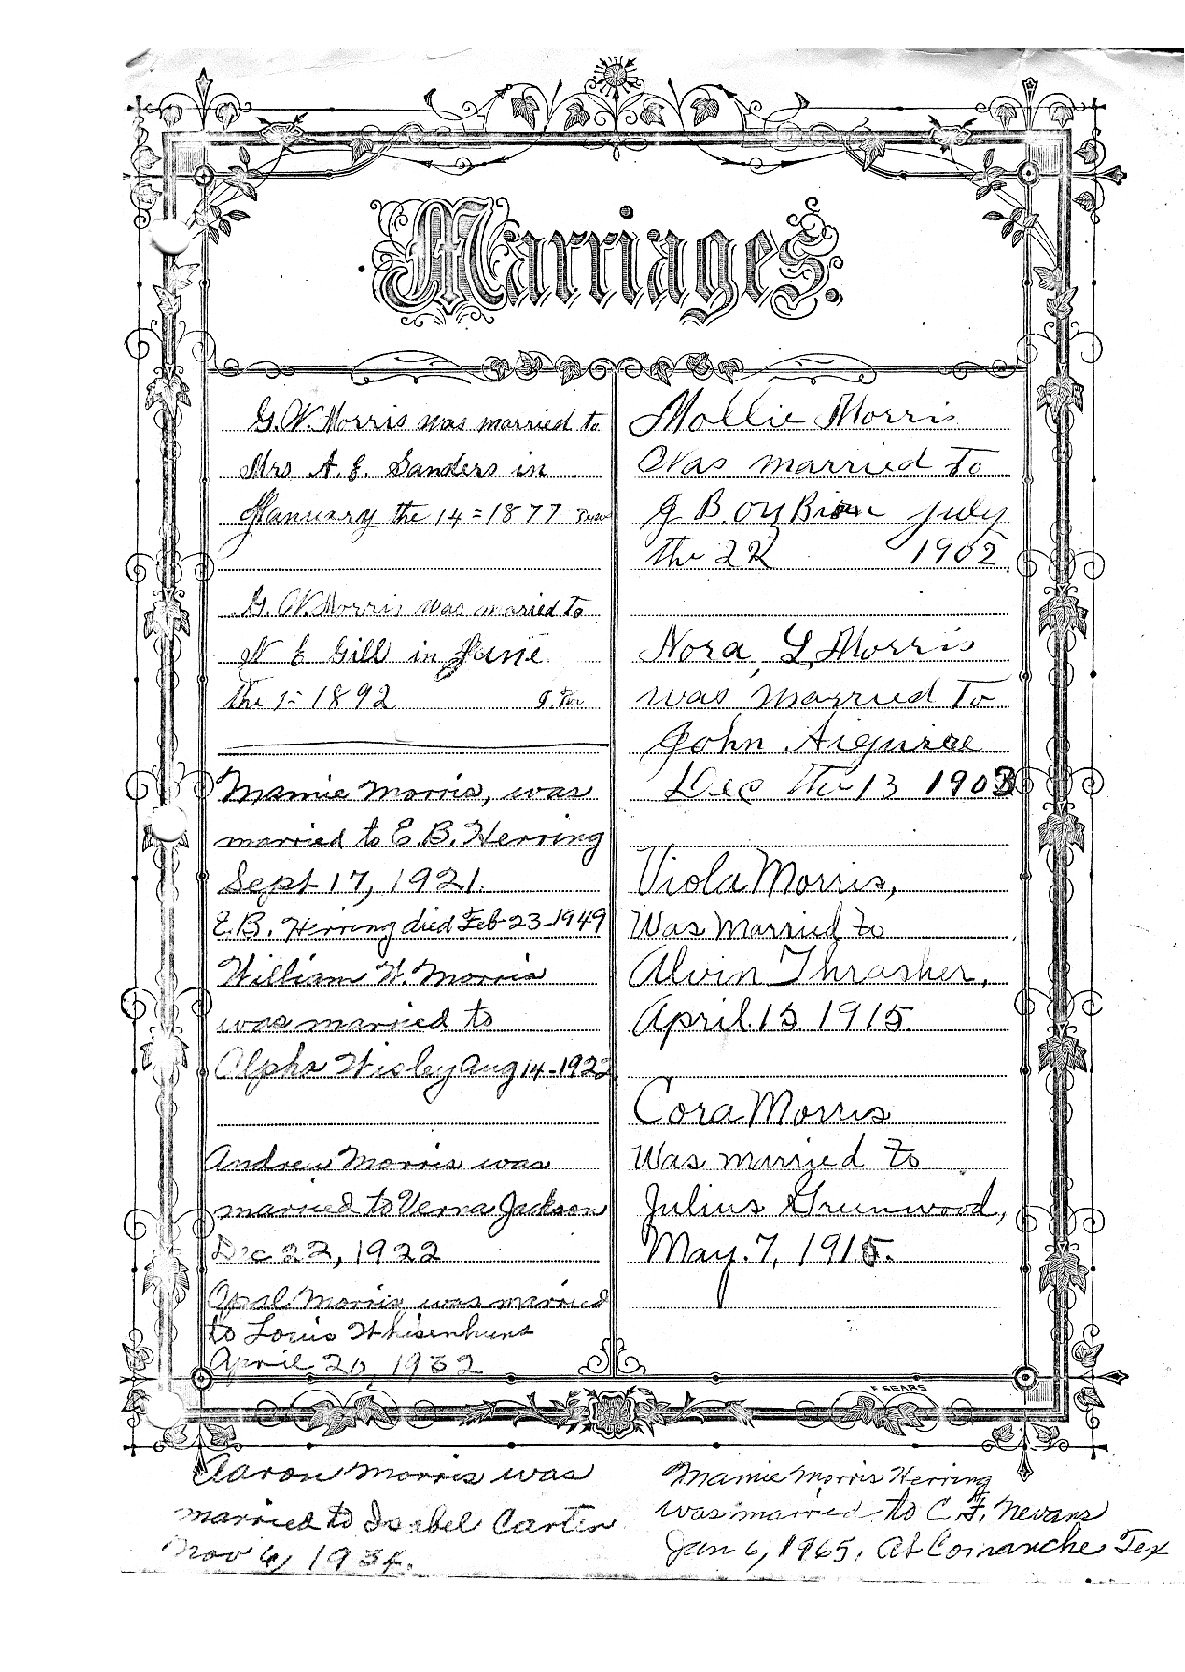 Marriages.
G. W. Morris was married to
Mrs A. E. Sanders in
January the 14=1877
G. W. Morris was maried to
N E Gill in June
the 1= 1892
Mamie Morris, was
married to E. B. Herring
Sept 17, 1921.
E. B. Herring died Feb 23-1949
William W. Morris
was married to
Alpha Aug 14-1922
Andrew Morris was
married to Verna Jackson
Dec 22, 1922
Opal Morris was married
to Louis Whisenhunt
April 20, 1932
Aaron Morris was
married to Isabel Carter
Nov 6, 1934.
Mollie Morris
Was married to
J B July
the 22 1902
Nora, L Morris
was married To
John
Dec the 13 1903
Viola Morris,
Was Married to
Alvin Thrasher,
April. 15 1915
Cora Morris
Was married to
Julius Greenwood,
May. 7, 1915.
F SEARS
Mamie Morris Herring
was married to C. F. Nevans
Jan 6, 1965. At Comanche Tex